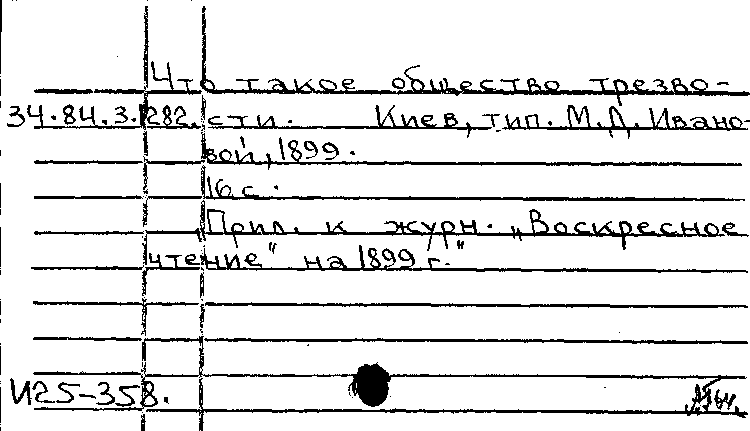 Что такое общество трезво-
34.84.3.282. сти. Киев, тип. М.Д. Ивано-
вой, 1899.
16 с.
„Прил. к журн. „Воскресное
чтение" на 1899 г."
И25-358.